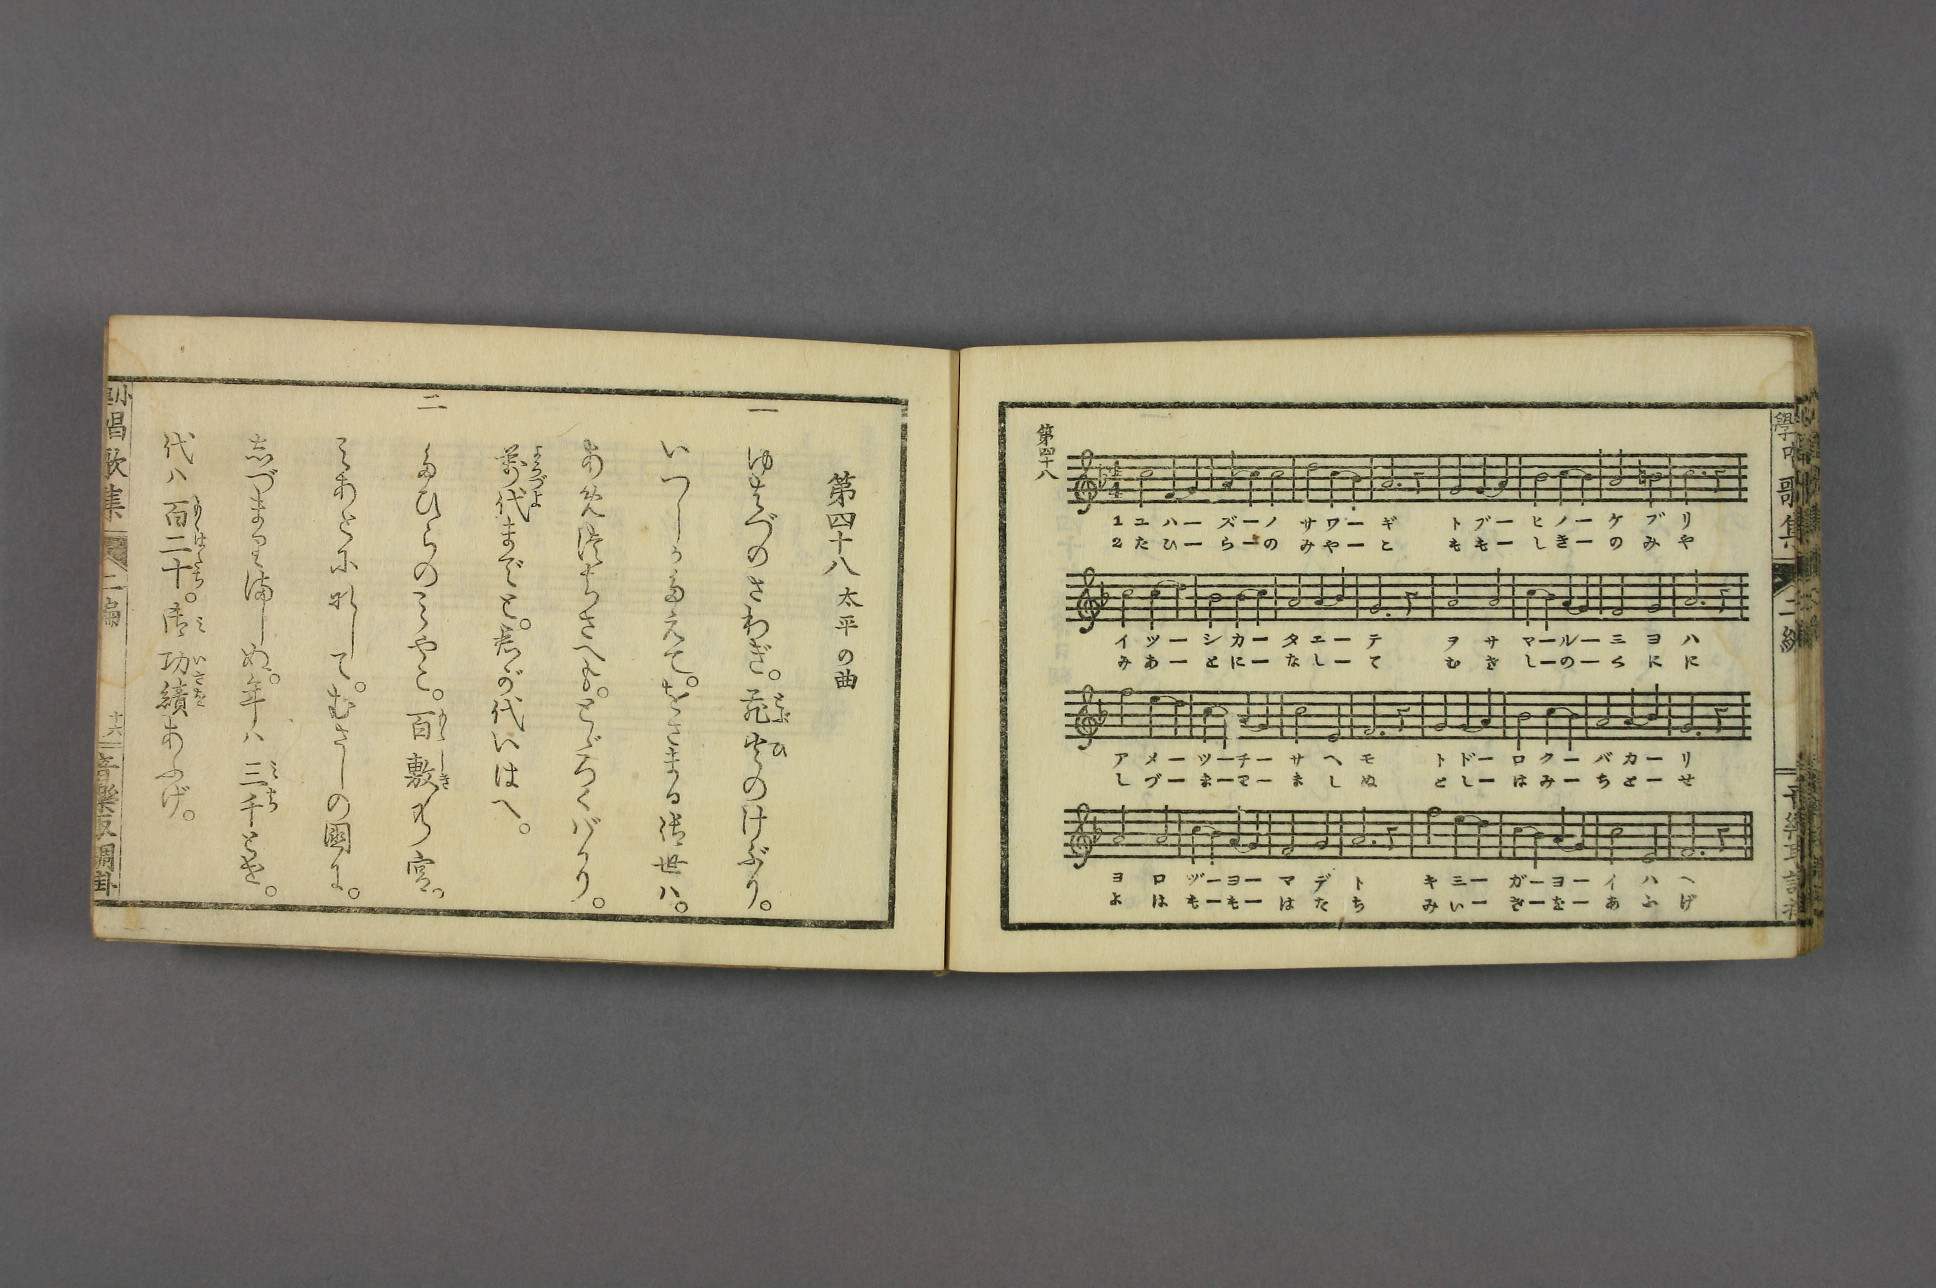 小學唱歌集 二編 音樂取調掛
第四十八
1 ユハー ズーノ サワーギ トブー ヒノー ケブリ
2 たひー らーの みやーと ももー しきー のみや
イツー シカー タエーテ ヲサ マールー ミヨハ
みあー とにー なしーて むさ しーのー くにに
アメー ツーチー サヘモ トドー ロクー バカーリ
しづー まーりー ましぬ としー はみー ちとーせ
ヨロ ヅーヨー マデト キミー ガーヨー イハヘ
よは もーもー はたち みいー さーをー あふげ
第四十八 太平の曲
一 ゆはづのさわぎ。飛火のけぶり。
いつしかたえて。をさまる御世ハ。
あめつちさへも。とどろくバかり。
萬代までと。君が代いはへ。
二 たひらのみやこ。百敷の宮。
みあとになして。むさしの國に。
志づまりましぬ。年ハ三千とせ。
代ハ百二十。御功績あふげ。
小學唱歌集 二編 十六 音樂取調掛